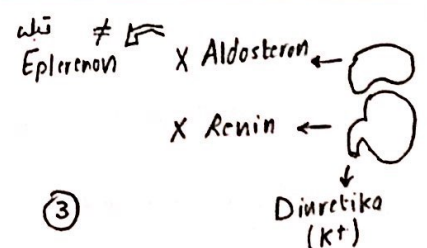 ≠
Eplerenon X Aldosteron ←
X Renin ←
③ Diuretika
(K+)